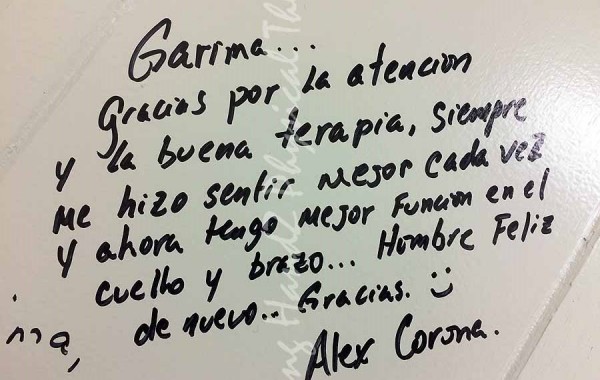 Garima...
Gracias por la atencion
y la buena terapia, siempre
me hizo sentir mejor cada vez
y ahora tengo mejor funcion en el
cuello y brazo... Hombre Feliz
de nuevo.. Gracias. :)
Alex Corona.